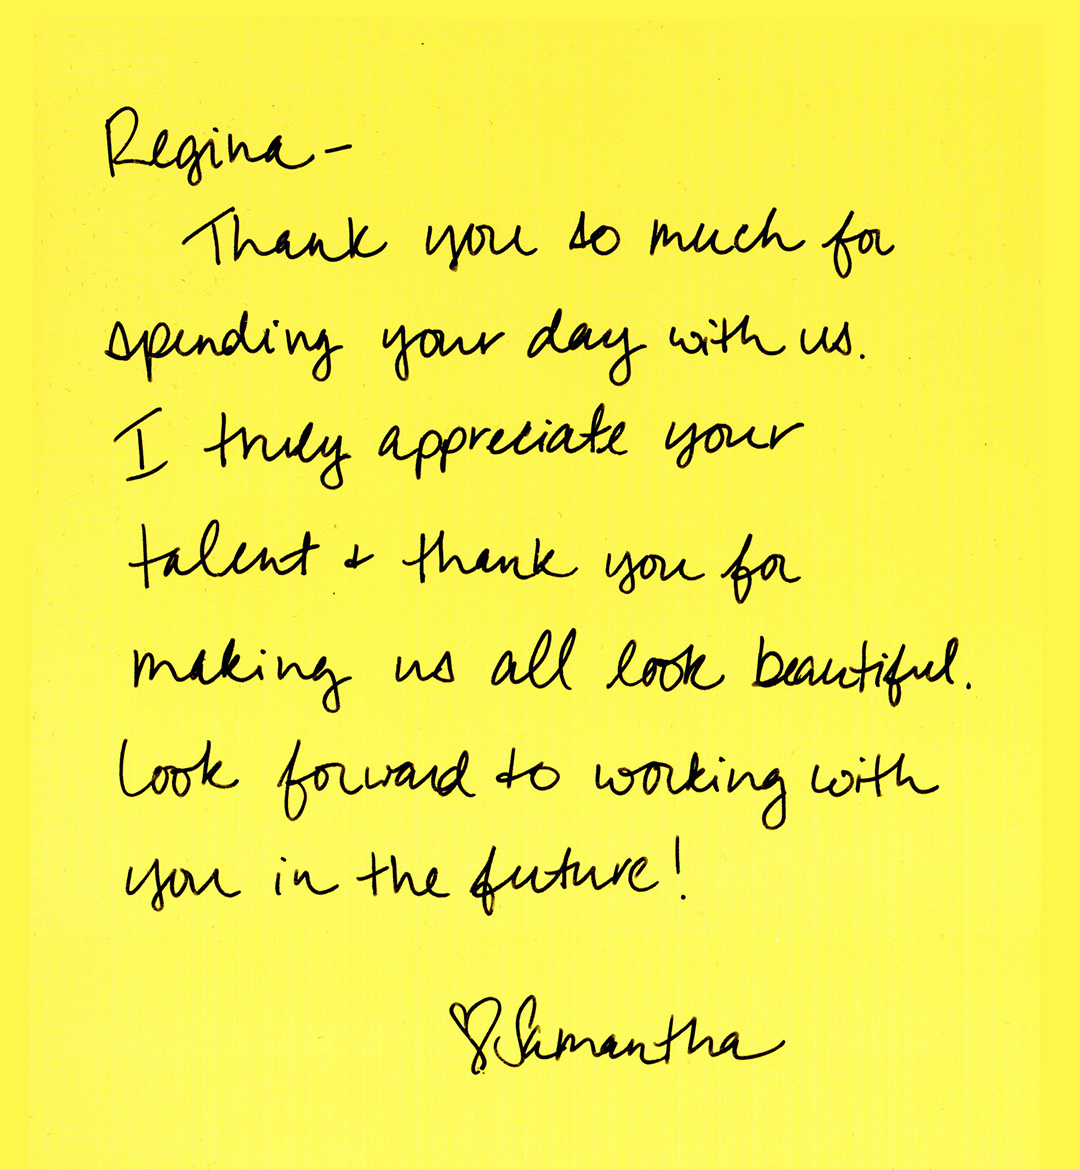 Regina -
Thank you so much for
spending your day with us.
I truly appreciate your
talent & thank you for
making us all look beautiful.
Look forward to working with
you in the future!
♡ Samantha